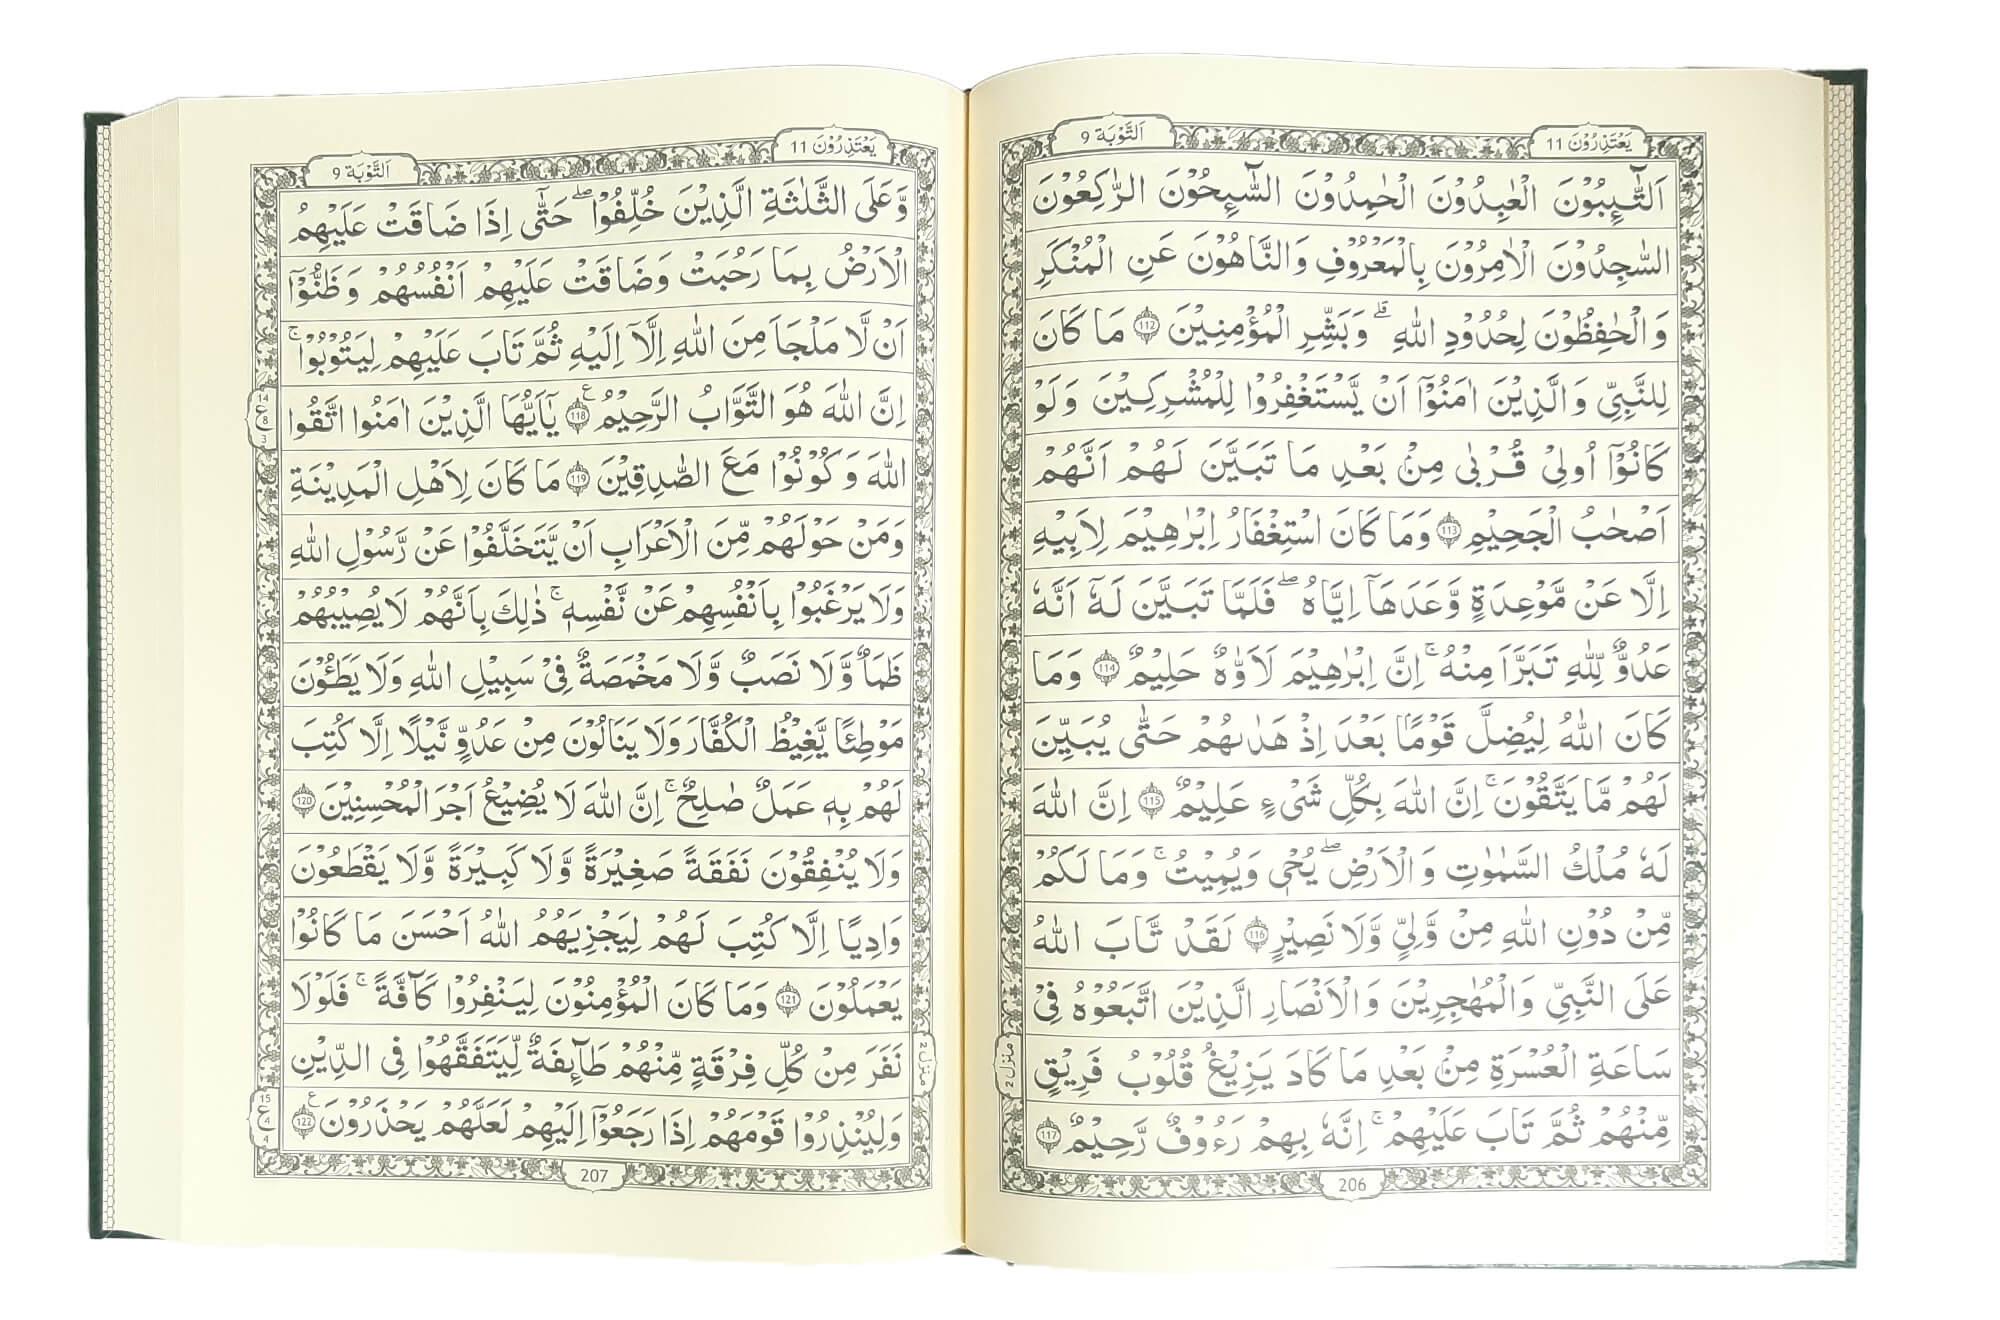 یَعْتَذِرُوْنَ 11
اَلتَّوْبَة 9
اَلتَّآئِبُوْنَ الْعٰبِدُوْنَ الْحٰمِدُوْنَ السَّآئِحُوْنَ الرّٰكِعُوْنَ
السّٰجِدُوْنَ الْاٰمِرُوْنَ بِالْمَعْرُوْفِ وَالنَّاهُوْنَ عَنِ الْمُنْكَرِ
وَالْحٰفِظُوْنَ لِحُدُوْدِ اللّٰهِ ؕ وَبَشِّرِ الْمُؤْمِنِيْنَ 112 مَا كَانَ
لِلنَّبِيِّ وَالَّذِيْنَ اٰمَنُوْۤا اَنْ يَّسْتَغْفِرُوْا لِلْمُشْرِكِيْنَ وَلَوْ
كَانُوْۤا اُولِيْ قُرْبٰى مِنْۢ بَعْدِ مَا تَبَيَّنَ لَهُمْ اَنَّهُمْ
اَصْحٰبُ الْجَحِيْمِ 113 وَمَا كَانَ اسْتِغْفَارُ اِبْرٰهِيْمَ لِاَبِيْهِ
اِلَّا عَنْ مَّوْعِدَةٍ وَّعَدَهَاۤ اِيَّاهُ ۖ فَلَمَّا تَبَيَّنَ لَهٗۤ اَنَّهٗ
عَدُوٌّ لِّلّٰهِ تَبَرَّاَ مِنْهُ ۚ اِنَّ اِبْرٰهِيْمَ لَاَوَّاهٌ حَلِيْمٌ 114 وَمَا
كَانَ اللّٰهُ لِيُضِلَّ قَوْمًۢا بَعْدَ اِذْ هَدٰىهُمْ حَتّٰى يُبَيِّنَ
لَهُمْ مَّا يَتَّقُوْنَ ۚ اِنَّ اللّٰهَ بِكُلِّ شَيْءٍ عَلِيْمٌ 115 اِنَّ اللّٰهَ
لَهٗ مُلْكُ السَّمٰوٰتِ وَالْاَرْضِ ۖ يُحْيٖ وَيُمِيْتُ ۚ وَمَا لَكُمْ
مِّنْ دُوْنِ اللّٰهِ مِنْ وَّلِيٍّ وَّلَا نَصِيْرٍ 116 لَقَدْ تَّابَ اللّٰهُ
عَلَى النَّبِيِّ وَالْمُهٰجِرِيْنَ وَالْاَنْصَارِ الَّذِيْنَ اتَّبَعُوْهُ فِيْ
سَاعَةِ الْعُسْرَةِ مِنْۢ بَعْدِ مَا كَادَ يَزِيْغُ قُلُوْبُ فَرِيْقٍ
مِّنْهُمْ ثُمَّ تَابَ عَلَيْهِمْ ۚ اِنَّهٗ بِهِمْ رَءُوْفٌ رَّحِيْمٌ 117
منزل 2
206
یَعْتَذِرُوْنَ 11
اَلتَّوْبَة 9
وَّعَلَى الثَّلٰثَةِ الَّذِيْنَ خُلِّفُوْا ۖ حَتّٰۤى اِذَا ضَاقَتْ عَلَيْهِمُ
الْاَرْضُ بِمَا رَحُبَتْ وَضَاقَتْ عَلَيْهِمْ اَنْفُسُهُمْ وَظَنُّوْۤا
اَنْ لَّا مَلْجَاَ مِنَ اللّٰهِ اِلَّاۤ اِلَيْهِ ثُمَّ تَابَ عَلَيْهِمْ لِيَتُوْبُوْا ۚ
اِنَّ اللّٰهَ هُوَ التَّوَّابُ الرَّحِيْمُ 118 يٰۤاَيُّهَا الَّذِيْنَ اٰمَنُوا اتَّقُوا
اللّٰهَ وَكُوْنُوْا مَعَ الصّٰدِقِيْنَ 119 مَا كَانَ لِاَهْلِ الْمَدِيْنَةِ
وَمَنْ حَوْلَهُمْ مِّنَ الْاَعْرَابِ اَنْ يَّتَخَلَّفُوْا عَنْ رَّسُوْلِ اللّٰهِ
وَلَا يَرْغَبُوْا بِاَنْفُسِهِمْ عَنْ نَّفْسِهٖ ۚ ذٰلِكَ بِاَنَّهُمْ لَا يُصِيْبُهُمْ
ظَمَاٌ وَّلَا نَصَبٌ وَّلَا مَخْمَصَةٌ فِيْ سَبِيْلِ اللّٰهِ وَلَا يَطَـُٔوْنَ
مَوْطِئًا يَّغِيْظُ الْكُفَّارَ وَلَا يَنَالُوْنَ مِنْ عَدُوٍّ نَّيْلًا اِلَّا كُتِبَ
لَهُمْ بِهٖ عَمَلٌ صَالِحٌ ۚ اِنَّ اللّٰهَ لَا يُضِيْعُ اَجْرَ الْمُحْسِنِيْنَ 120
وَلَا يُنْفِقُوْنَ نَفَقَةً صَغِيْرَةً وَّلَا كَبِيْرَةً وَّلَا يَقْطَعُوْنَ
وَادِيًا اِلَّا كُتِبَ لَهُمْ لِيَجْزِيَهُمُ اللّٰهُ اَحْسَنَ مَا كَانُوْا
يَعْمَلُوْنَ 121 وَمَا كَانَ الْمُؤْمِنُوْنَ لِيَنْفِرُوْا كَآفَّةً ۚ فَلَوْلَا
نَفَرَ مِنْ كُلِّ فِرْقَةٍ مِّنْهُمْ طَآئِفَةٌ لِّيَتَفَقَّهُوْا فِى الدِّيْنِ
وَلِيُنْذِرُوْا قَوْمَهُمْ اِذَا رَجَعُوْۤا اِلَيْهِمْ لَعَلَّهُمْ يَحْذَرُوْنَ 122
منزل 2
14 ع 8 3
15 ع 4 4
207